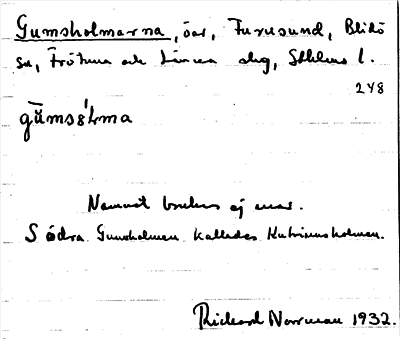 Gumsholmarna, öar, Furusund, Blidö
sn, Frötuna och Länna skg, Sthlms l.
248
gũmsó̀lma
Namnet brukas ej mer.
Södra Gumsholmen kallades Kutrimsholmen.
Rickard Norrman 1932.